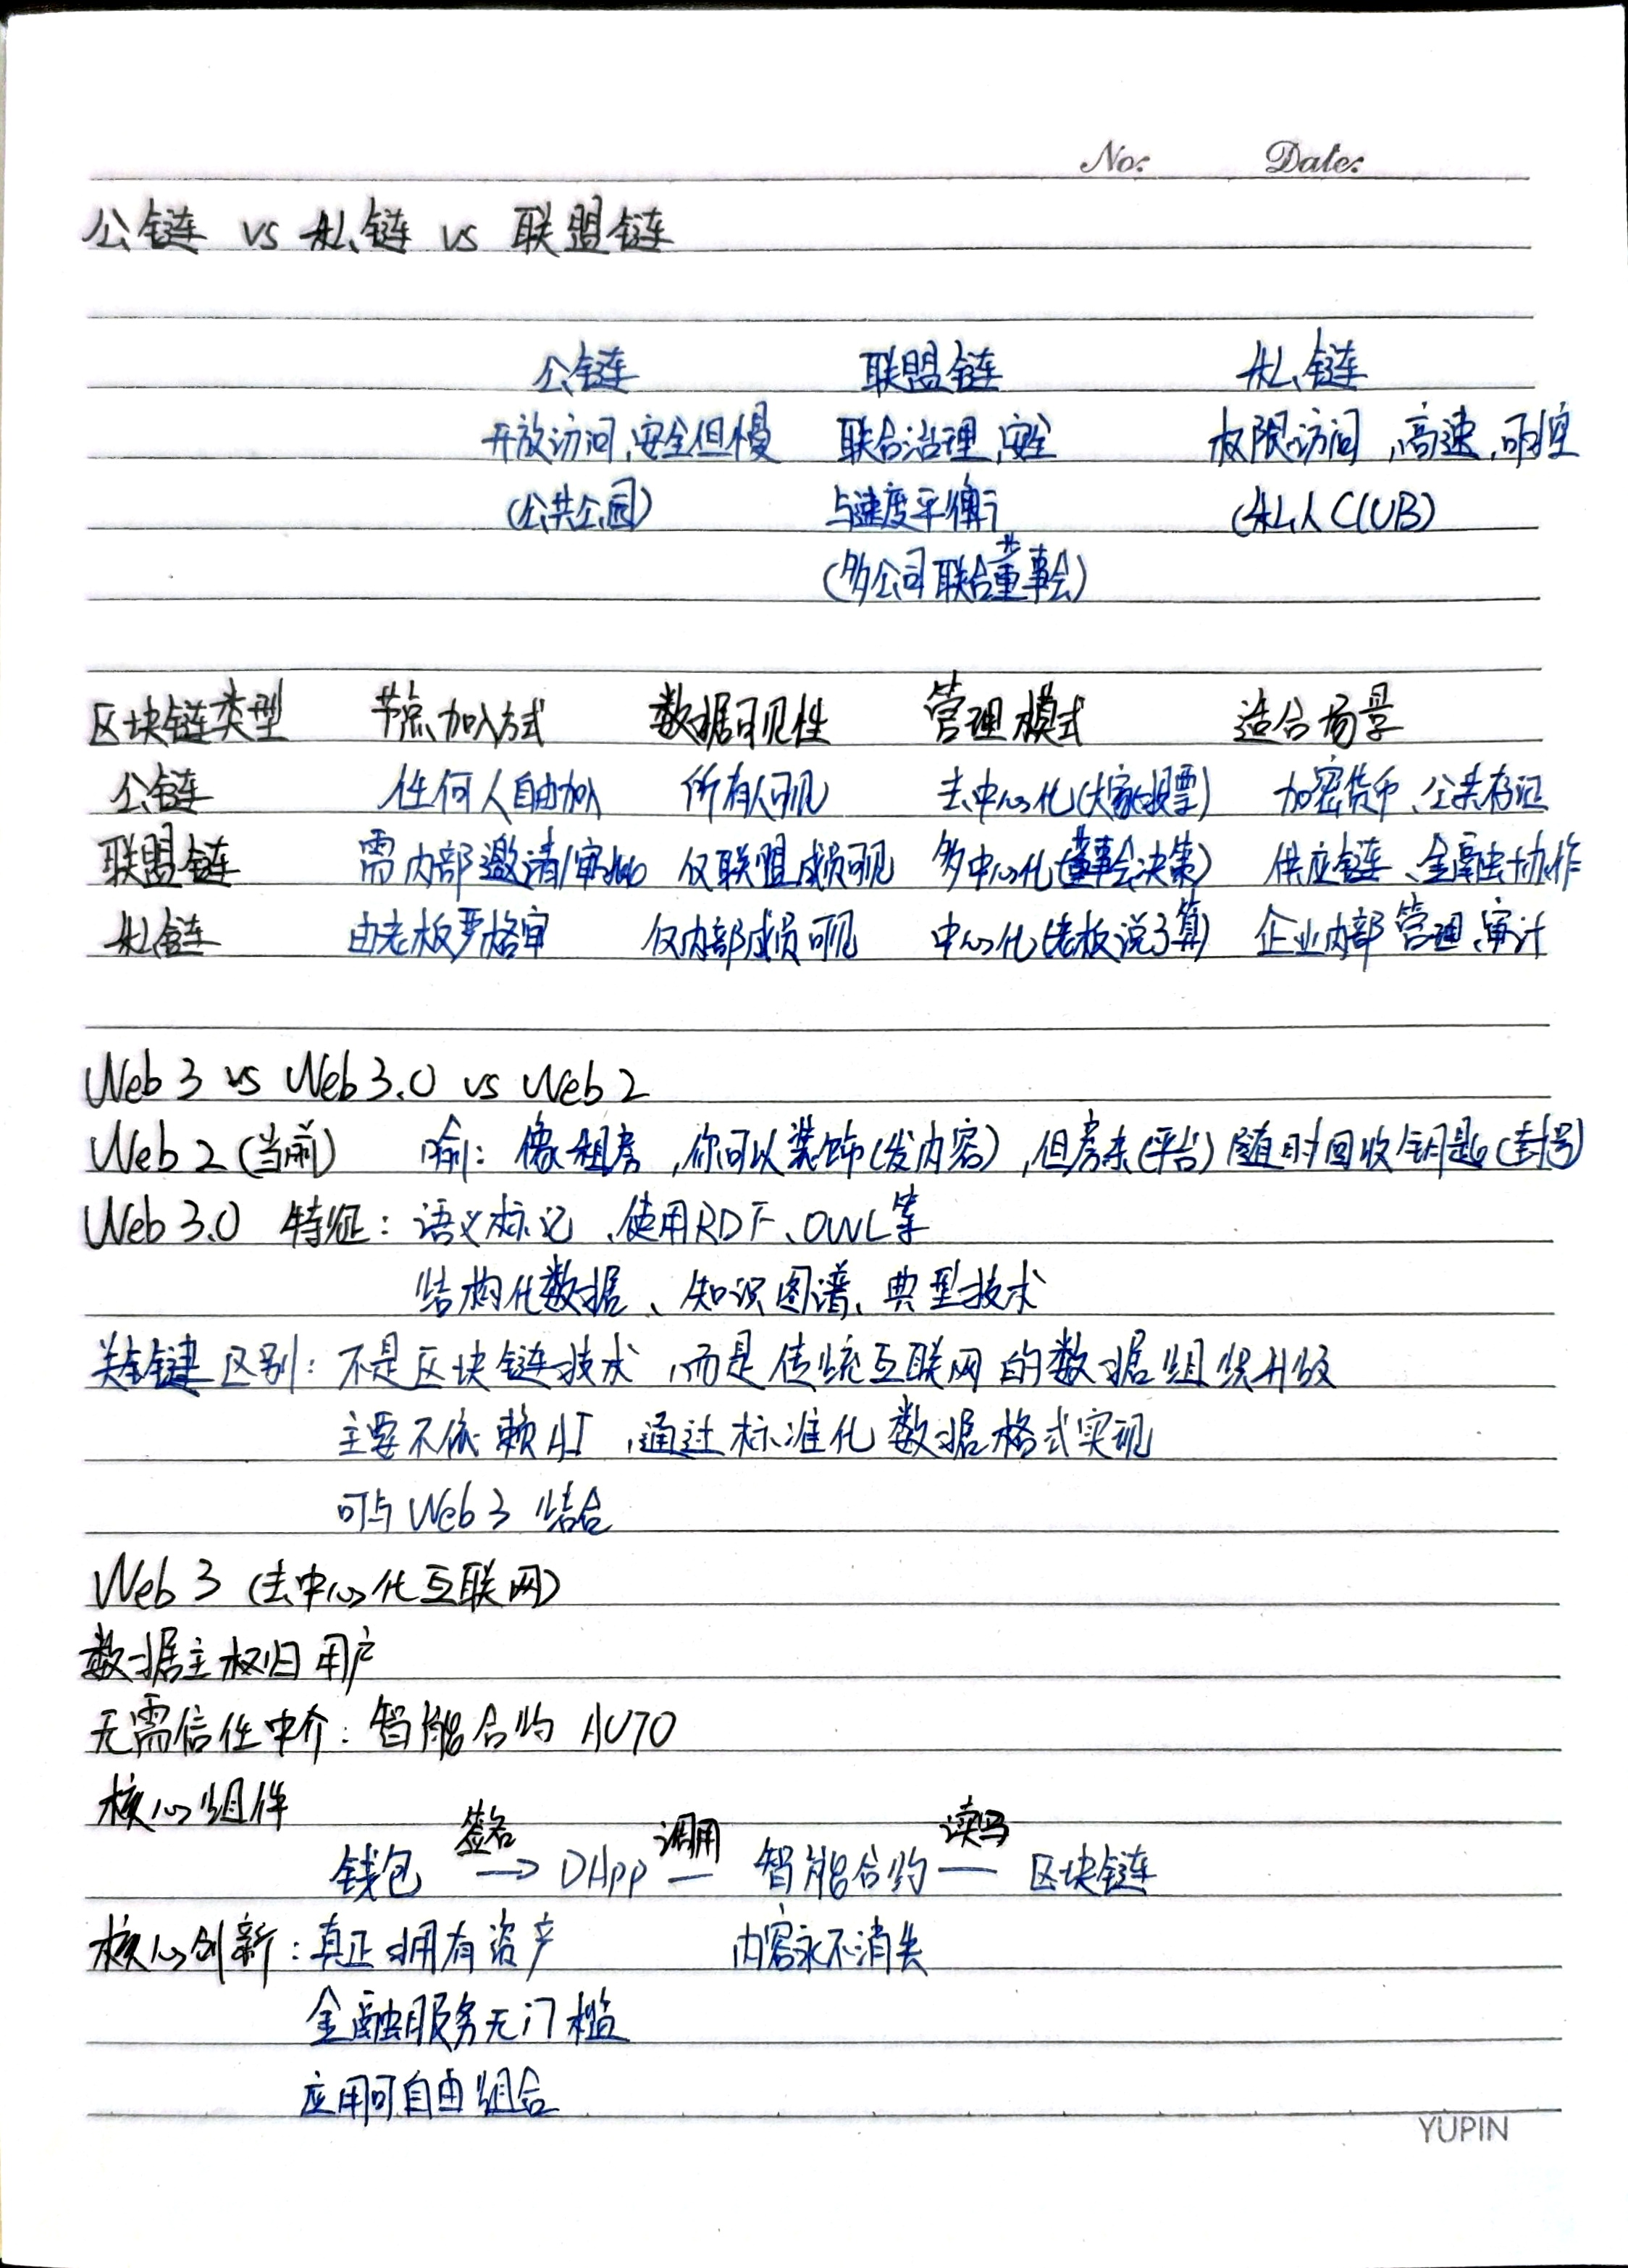 No: Date:
公链 vs 私链 vs 联盟链
公链 联盟链 私链
开放访问,安全但慢 联合治理,安全 权限访问,高速,可控
(公共公园) 与速度平衡 (私人CLUB)
(多公司联合董事会)
区块链类型 节点加入方式 数据可见性 管理模式 适合场景
公链 任何人自由加入 所有人可见 去中心化(大家投票) 加密货币、公共存证
联盟链 需内部邀请/审批 仅联盟成员可见 多中心化(董事会决策) 供应链、金融协作
私链 由老板严格审 仅内部成员可见 中心化(老板说了算) 企业内部管理、审计
Web 3 vs Web 3.0 vs Web 2
Web 2 (当前) 喻: 像租房,你可以装饰(发内容),但房东(平台)随时回收钥匙(封号)
Web 3.0 特征: 语义标记、使用RDF、OWL等
结构化数据、知识图谱、典型技术
关键区别: 不是区块链技术,而是传统互联网的数据组织升级
主要不依赖AI,通过标准化数据格式实现
可与Web 3 结合
Web 3 (去中心化互联网)
数据主权归用户
无需信任中介: 智能合约 AUTO
核心组件
签名 调用 读写
钱包 → DApp — 智能合约 — 区块链
核心创新: 真正拥有资产 内容永不消失
金融服务无门槛
应用可自由组合
YUPIN